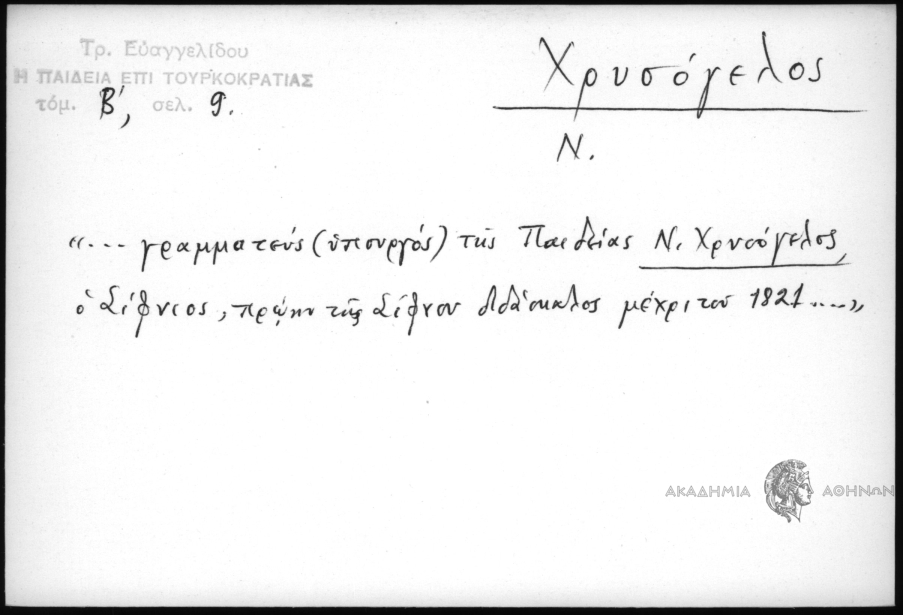 Τρ. Εὐαγγελίδου
Η ΠΑΙΔΕΙΑ ΕΠΙ ΤΟΥΡΚΟΚΡΑΤΙΑΣ
τόμ. Β', σελ. 9.
Χρυσόγελος
Ν.
«... γραμματεύς (ὑπουργός) τῆς Παιδείας Ν. Χρυσόγελος,
ὁ Σίφνιος, πρῴην τῆς Σίφνου διδάσκαλος μέχρι του 1821....»
ΑΚΑΔΗΜΙΑ ΑΘΗΝΩΝ